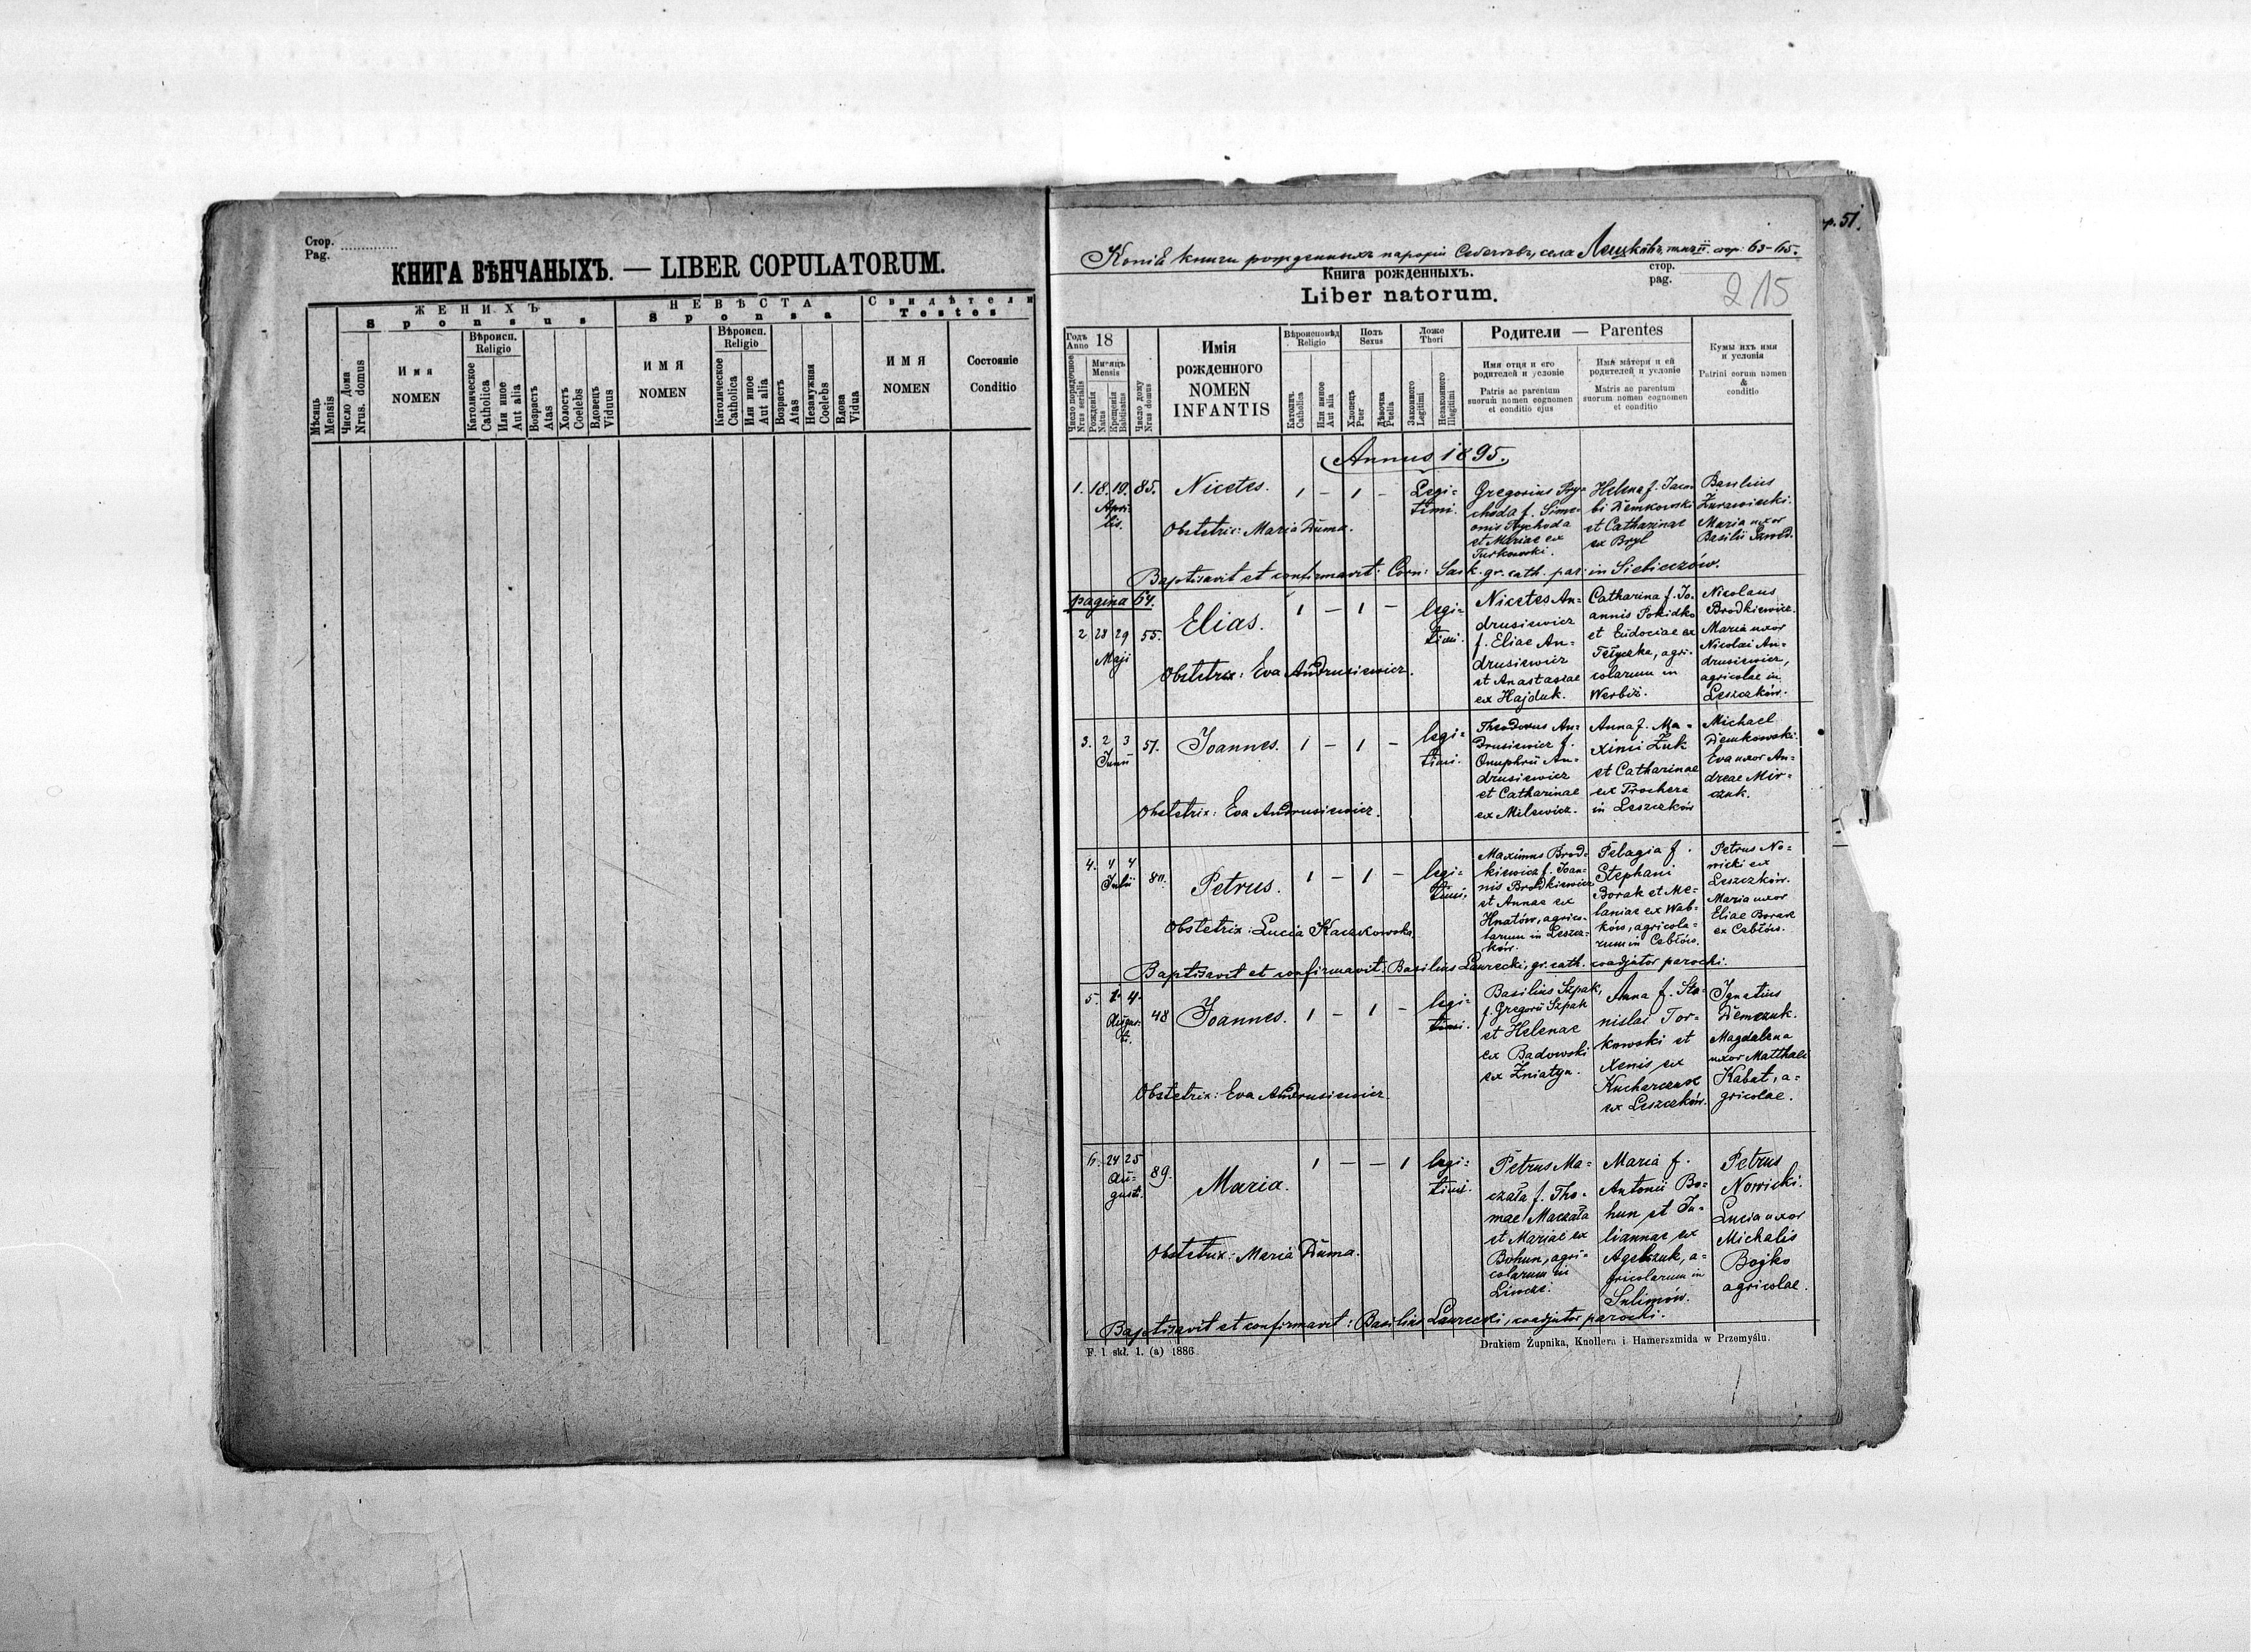 Стор.
Pag.
КНИГА ВѢНЧАНЫХЪ. — LIBER COPULATORUM.
ЖЕНИХЪ
Sponsus
НЕВѢСТА
Sponsa
Свидѣтели
Testes
Мѣсяць
Mensis
Число Дома
Nrus. domus
Имя
NOMEN
Вѣроисп.
Religio
Католическое
Catholica
Или иное
Aut alia
Возрастъ
Atas
Холостъ
Coelebs
Вдовецъ
Viduus
ИМЯ
NOMEN
Вѣроисп.
Religio
Католическое
Catholica
Или иное
Aut alia
Возрастъ
Atas
Незамужная
Coelebs
Вдова
Vidua
ИМЯ
NOMEN
Состояніе
Conditio
p. 51.
Копія книги рожденныхъ парохіи села Лешковъ, томъ II. стор: 63-65.
Книга рожденныхъ.
Liber natorum.
стор.
pag.
215
Годъ
Anno 18
Число порядочное
Nrus serialis
Мѣсяцъ
Mensis
Рожденія
Natus
Крещенія
Babtisatus
Число дому
Nrus domus
Имія
рожденного
NOMEN
INFANTIS
Вѣроисповѣд
Religio
Католич.
Catholica
Или иное
Aut alia
Полъ
Sexus
Хлопецъ
Puer
Дѣвочка
Puella
Ложе
Thori
Законного
Legitimi
Незаконного
Illegitimi
Родители — Parentes
Имя отця и его
родителей и условіе
Patris ac parentum
suorum nomen cognomen
et conditio ejus
Имя матери и ей
родителей и условіе
Matris ac parentum
suorum nomen cognomen
et conditio
Кумы ихъ имя
и условія
Patrini eorum nomen
&
conditio
Annus 1895.
1. 18. 19. 85. Nicetes. 1 - 1 - Legi-
timi.
Apri-
lis.
Obstetrix: Maria Duma.
Gregorius Pry-
choda f. Sime-
onis Prychoda
et Mariae ex
Turkowski.
Helena f. Jaco-
bi Demkowski
et Catharinae
ex Bryl
Basilius
Żurawicki.
Maria uxor
Basilii
Baptisavit et confirmavit: Corn: Saik. gr. cath. par. in Siebieczów.
pagina 64.
2. 28 29 55. Elias. 1 - 1 - legi-
timi.
Maji
Obstetrix: Eva Andrusiewicz.
Nicetes An-
drusiewicz
f. Eliae An-
drusiewicz
et Anastasiae
ex Hajduk.
Catharina f. Jo-
annis Pokidko
et Eudociae ex
agri-
colarum in
Werbiż.
Nicolaus
Brodkiewicz.
Maria uxor
Nicolai An-
drusiewicz,
agricolae in
Leszczków.
3. 2 3 51. Joannes. 1 - 1 - legi-
timi.
Junii
Obstetrix: Eva Andrusiewicz.
Theodorus An-
drusiewicz f.
Onuphrii An-
drusiewicz
et Catharinae
ex Milewicz.
Anna f. Ma-
ximi Żuk
et Catharinae
ex Prochera
in Leszczków
Michael
Demkowski.
Eva uxor An-
dreae Mir-
czuk.
4. 4 4 80. Petrus. 1 - 1 - legi-
timi.
Julii
Obstetrix: Lucia Kaczkowska
Maximus Brod-
kiewicz f. Joan-
nis Brodkiewicz
et Annae ex
Hnatów, agrico-
larum in Leszcz-
ków.
Pelagia f.
Stephani
Borak et Me-
laniae ex Wab-
ków, agricola-
rum in Cebłów.
Petrus No-
wicki ex
Leszczków.
Maria uxor
Eliae Borak
ex Cebłów.
Baptisavit et confirmavit: Basilius Laurecki, gr. cath. coadjutor parochi.
5. 1. 4. 48 Joannes. 1 - 1 - legi-
timi.
Augus-
ti.
Obstetrix: Eva Andrusiewicz
Basilius Szpak,
f. Gregorii Szpak
et Helenae
ex Badowski
ex Żniatyn.
Anna f. Sta-
nislai Tor-
kowski et
Xenis ex
Kucharczuk
ex Leszczków.
Ignatius
Demczuk.
Magdalena
uxor Matthaei
Kabat, a-
gricolae.
6. 24 25 89. Maria. 1 - - 1 legi-
timi.
Au-
gusti.
Obstetrix: Maria Duma.
Petrus Ma-
czała f. Tho-
mae Maczała
et Mariae ex
Bohun, agri-
colarum in
Liwcze.
Maria f.
Antonii Bo-
hun et Ju-
liannae ex
a-
gricolarum in
Sulimów.
Petrus
Nowicki.
Lucia uxor
Michalis
Bojko
agricolae.
Baptisavit et confirmavit: Basilius Laurecki, coadjutor parochi.
F. 1 skł. 1. (a) 1886
Drukiem Żupnika, Knollera i Hamerszmida w Przemyślu.